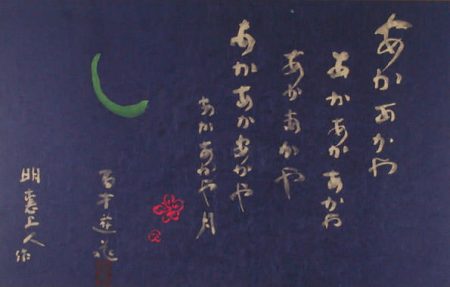 あかあかや
あかあかあかや
あかあかや
あかあかあかや
あかあかや月
明恵上人作